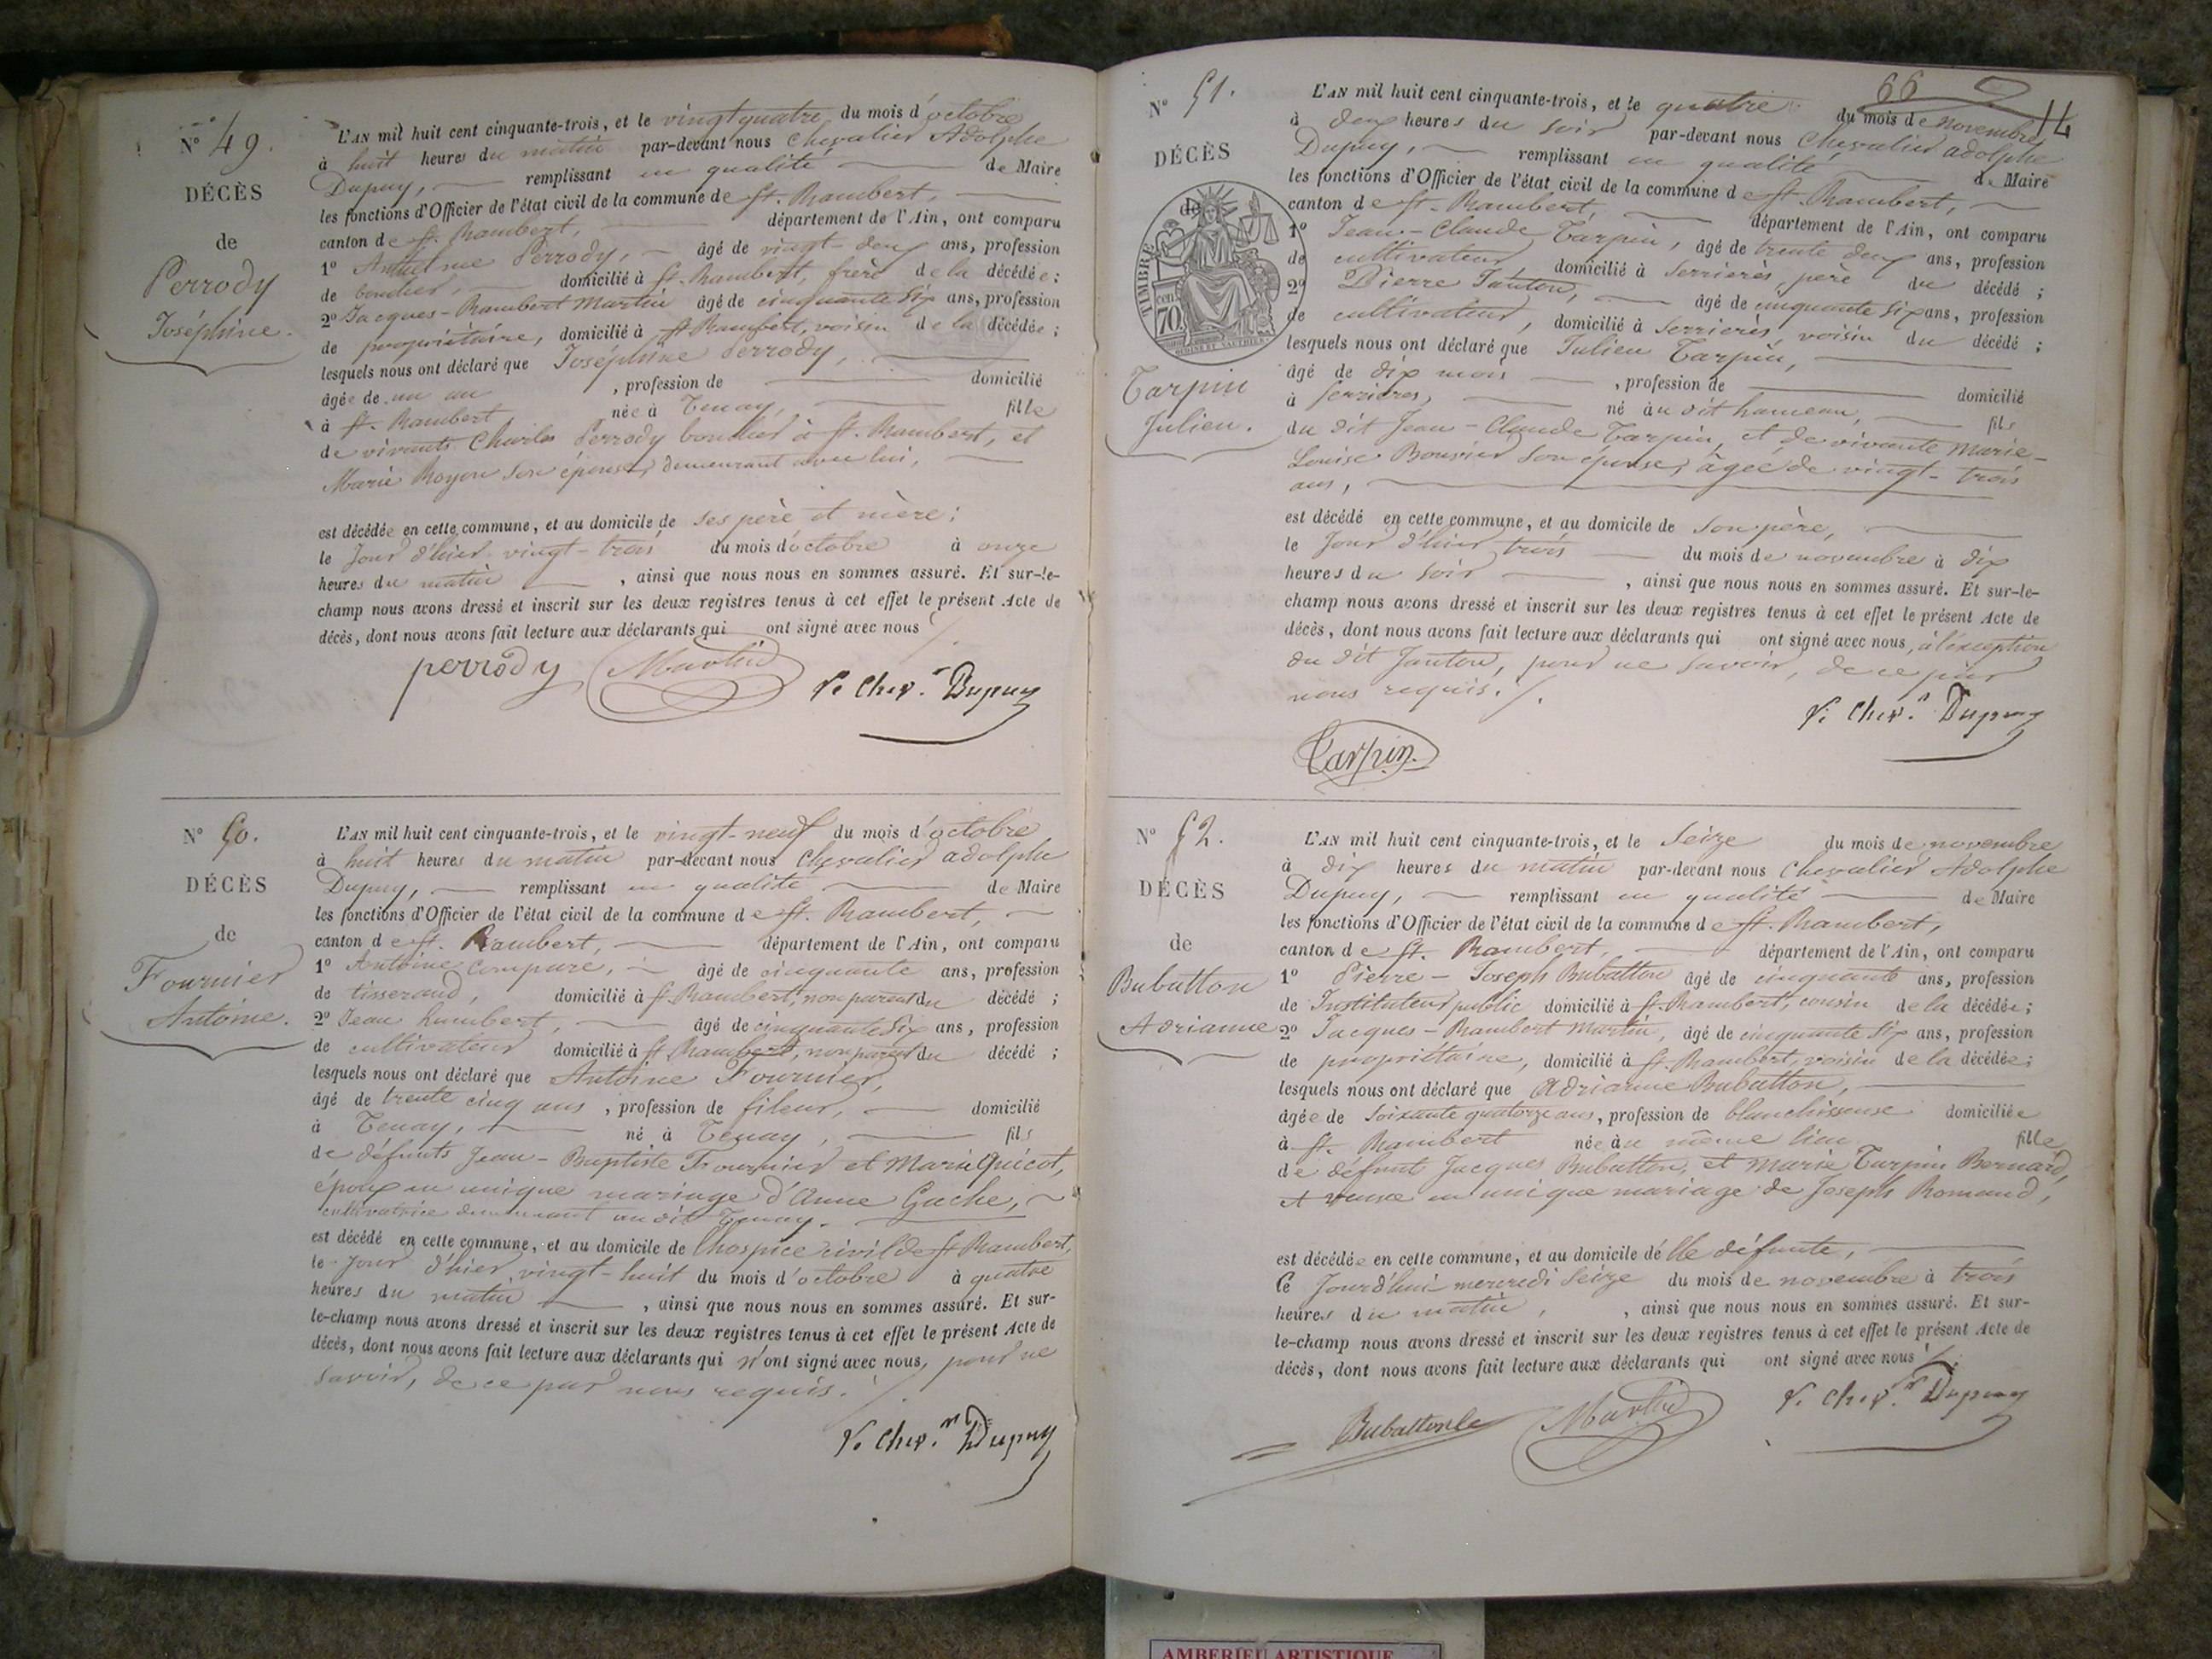 N° 49.
DÉCÈS
de
Perrody
Joséphine.
L'AN mil huit cent cinquante-trois, et le vingt quatre du mois d'octobre
à huit heures du matin par-devant nous Chevalier Adolphe
Dupuy, remplissant en qualité de Maire
les fonctions d'Officier de l'état civil de la commune de St. Rambert,
canton de St. Rambert, département de l'Ain, ont comparu
1° Anthelme Perrody, âgé de vingt-deux ans, profession
de boucher, domicilié à St. Rambert, frère de la décédée ;
2° Jacques-Rambert Martin âgé de cinquante six ans, profession
de propriétaire, domicilié à St Rambert, voisin de la décédée ;
lesquels nous ont déclaré que Joséphine Perrody,
âgée de un an , profession de domicilié
à St. Rambert, née à Tenay, fille
de vivants Charles Perrody boucher à St. Rambert, et
Marie Royon son épouse, demeurant avec lui,
est décédée en cette commune, et au domicile de ses père et mère ;
le Jour d'hier vingt-trois du mois d'octobre à onze
heures du matin , ainsi que nous nous en sommes assuré. Et sur-le-
champ nous avons dressé et inscrit sur les deux registres tenus à cet effet le présent Acte de
décès, dont nous avons fait lecture aux déclarants qui ont signé avec nous ./.
perrody Martin Chev.r Dupuy
N° 50.
DÉCÈS
de
Fournier
Antoine.
L'AN mil huit cent cinquante-trois, et le vingt-neuf du mois d'octobre
à huit heures du matin par-devant nous Chevalier adolphe
Dupuy, remplissant en qualité de Maire
les fonctions d'Officier de l'état civil de la commune de St. Rambert,
canton de St. Rambert, département de l'Ain, ont comparu
1° Antoine Compare, âgé de cinquante ans, profession
de tisserand, domicilié à St Rambert, non parent du décédé ;
2° Jean humbert, âgé de cinquante six ans, profession
de cultivateur domicilié à St Rambert, non parent du décédé ;
lesquels nous ont déclaré que Antoine Fournier,
âgé de trente cinq ans , profession de fileur, domicilié
à Tenay, né à Tenay, fils
de défunts Jean-Baptiste Fournier et Marie Quicot,
époux en unique mariage d'Anne Gache,
cultivatrice demeurant au dit Tenay.
est décédé en cette commune, et au domicile de l'hospice civil de St Rambert,
le Jour d'hier vingt-huit du mois d'octobre à quatre
heures du matin , ainsi que nous nous en sommes assuré. Et sur-
le-champ nous avons dressé et inscrit sur les deux registres tenus à cet effet le présent Acte de
décès, dont nous avons fait lecture aux déclarants qui n'ont signé avec nous, pour ne
savoir, de ce par nous requis. ./.
Chev.r Dupuy
66
14
N° 51.
DÉCÈS
de
TIMBRE
cen
70
Tarpin
Julien.
L'AN mil huit cent cinquante-trois, et le quatre du mois de novembre
à deux heures du soir par-devant nous Chevalier adolphe
Dupuy, remplissant en qualité de Maire
les fonctions d'Officier de l'état civil de la commune de St. Rambert,
canton de St. Rambert, département de l'Ain, ont comparu
1° Jean-Claude Tarpin, âgé de trente deux ans, profession
de cultivateur domicilié à Serrières, père du décédé ;
2° Pierre Janton, âgé de cinquante six ans, profession
de cultivateur, domicilié à Serrières, voisin du décédé ;
lesquels nous ont déclaré que Julien Tarpin,
âgé de dix mois , profession de domicilié
à Serrières, né au dit hameau, fils
du dit Jean-Claude Tarpin, et de vivante Marie-
Louise Bousier son épouse, âgée de vingt-trois
ans,
est décédé en cette commune, et au domicile de son père,
le Jour d'hier trois du mois de novembre à dix
heures du soir , ainsi que nous nous en sommes assuré. Et sur-le-
champ nous avons dressé et inscrit sur les deux registres tenus à cet effet le présent Acte de
décès, dont nous avons fait lecture aux déclarants qui ont signé avec nous, à l'exception
du dit Janton, pour ne savoir, de ce par
nous requis. ./.
Chev.r Dupuy
Tarpin.
N° 52.
DÉCÈS
de
Bubatton
Adrianne
L'AN mil huit cent cinquante-trois, et le Seize du mois de novembre
à dix heures du matin par-devant nous Chevalier Adolphe
Dupuy, remplissant en qualité de Maire
les fonctions d'Officier de l'état civil de la commune de St. Rambert,
canton de St. Rambert, département de l'Ain, ont comparu
1° Pierre-Joseph Bubatton âgé de cinquante ans, profession
de Instituteur public domicilié à St. Rambert, cousin de la décédée ;
2° Jacques-Rambert Martin, âgé de cinquante six ans, profession
de propriétaire, domicilié à St. Rambert, voisin de la décédée ;
lesquels nous ont déclaré que Adrianne Bubatton,
âgée de soixante quatorze ans, profession de blanchisseuse domiciliée
à St. Rambert née au même lieu fille
de défunt Jacques Bubatton, et Marie Tarpin Bernard,
et veuve en unique mariage de Joseph Romand,
est décédée en cette commune, et au domicile de lle défunte,
Ce Jourd'hui mercredi Seize du mois de novembre à trois
heures du matin, , ainsi que nous nous en sommes assuré. Et sur-
le-champ nous avons dressé et inscrit sur les deux registres tenus à cet effet le présent Acte de
décès, dont nous avons fait lecture aux déclarants qui ont signé avec nous ./.
Martin Chev.r Dupuy
AMBERIEU ARTISTIQUE